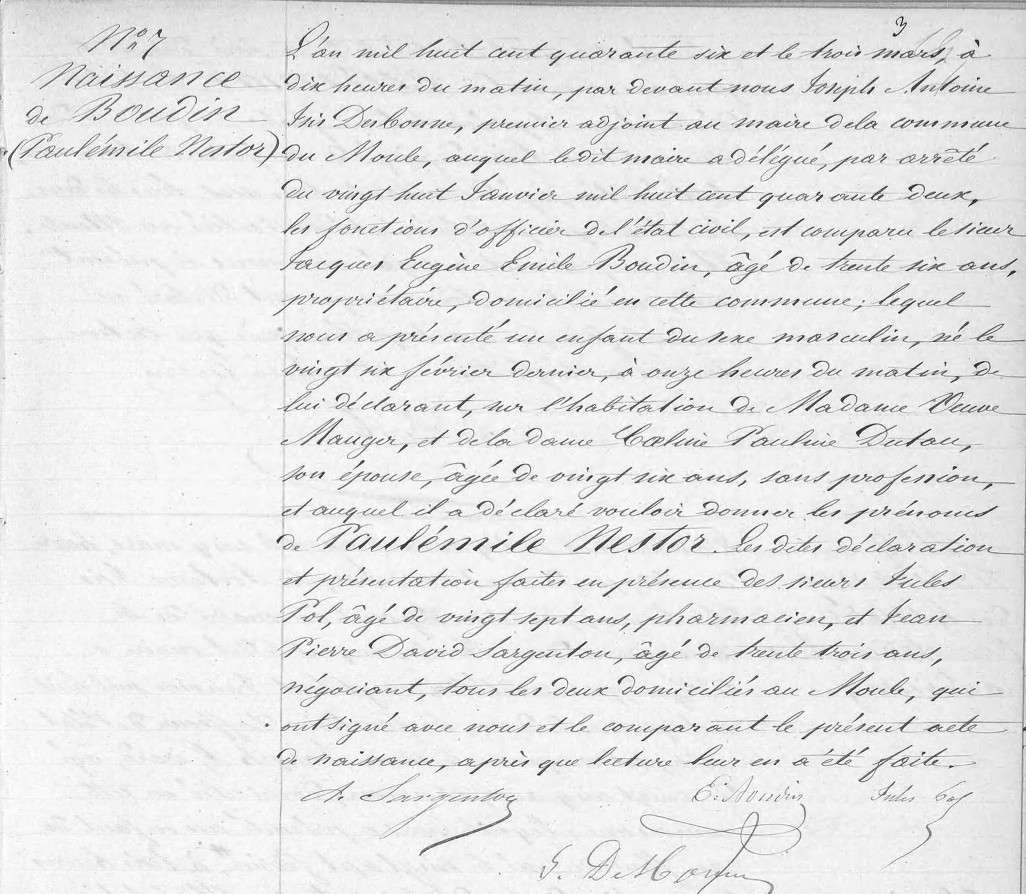 3
N° 7
Naissance
de Boudin
(Paulémile Nestor)
L'an mil huit cent quarante six et le trois mars, à
dix heures du matin, par devant nous Joseph Antoine
Iris Derbonne, premier adjoint au maire dela commune
du Moule, auquel ledit maire a délégué, par arrêté
du vingt huit Janvier mil huit cent quarante deux,
les fonctions d'officier de l'état civil, est comparu le sieur
Jacques Eugène Emile Boudin, âgé de trente six ans,
propriétaire, domicilié en cette commune; lequel
nous a présenté un enfant du sexe masculin, né le
vingt six février dernier, à onze heures du matin, de
lui déclarant, sur l'habitation de Madame Veuve
Mauger, et de la dame Cœline Pauline Dutau,
son épouse, âgée de vingt six ans, sans profession,
et auquel il a déclaré vouloir donner les prénoms
de Paulémile Nestor. Les dites déclaration
et présentation faites en présence des sieurs Jules
Pol, âgé de vingt sept ans, pharmacien, et Jean
Pierre David Sargenton, âgé de trente trois ans,
négociant, tous les deux domiciliés au Moule, qui
ont signé avec nous et le comparant le présent acte
de naissance, après que lecture leur en a été faite.
Sargenton E. Boudin Jules